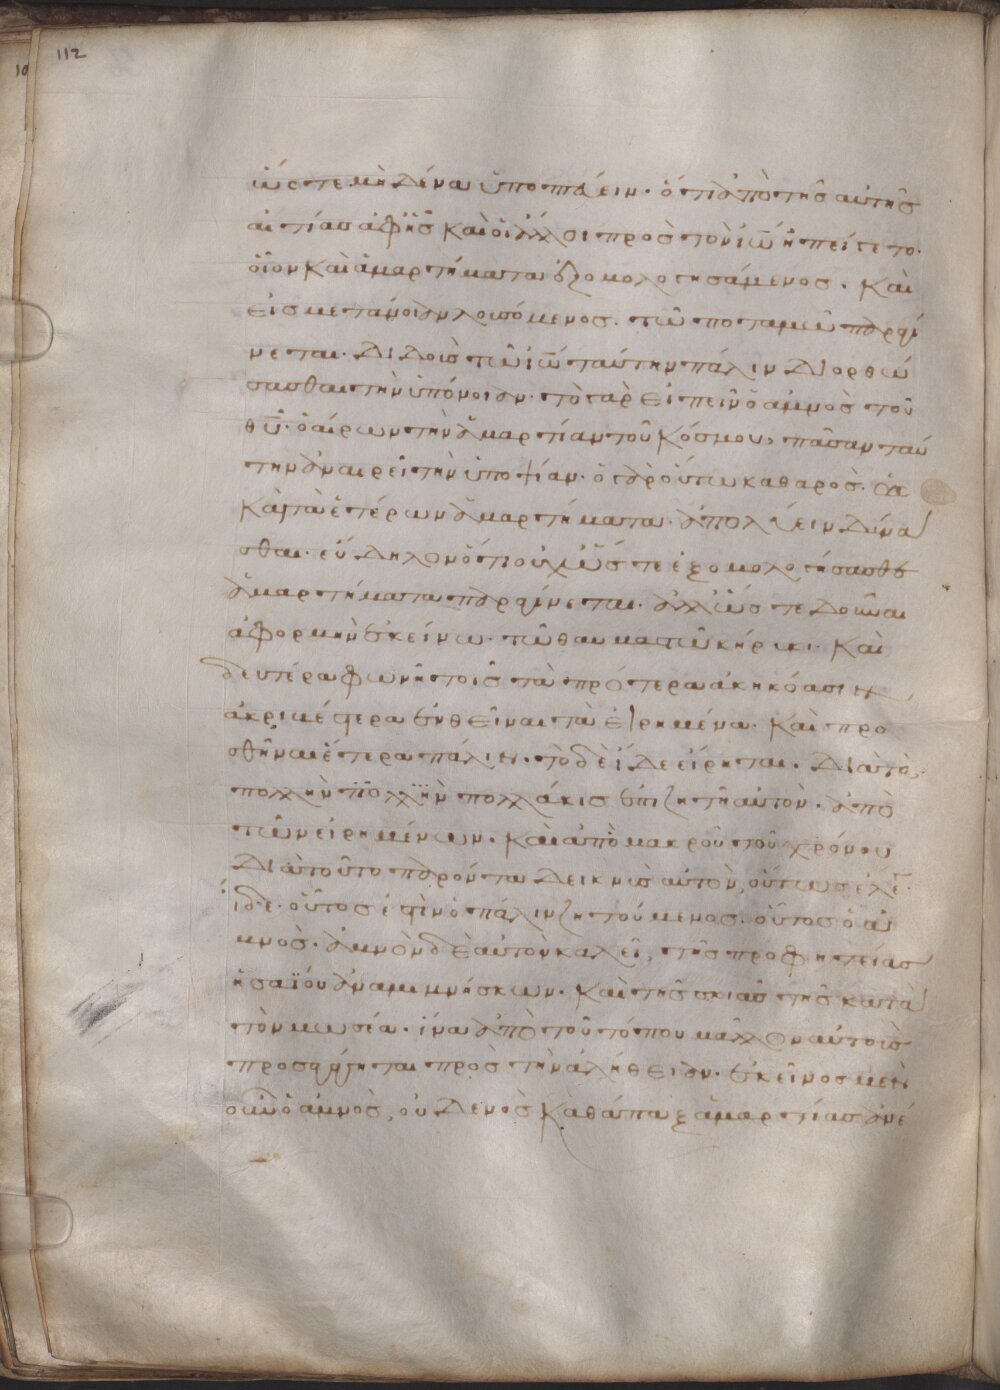 112
ὥστε μηδένα ὑποπτεύειν· ὅτι ἀπὸ τῆς αὐτῆς
αἰτίας ἀφ' ἧς καὶ οἱ πολλοὶ πρὸς τὸν ἰω ἠπείγετο·
οἷον καὶ ἁμαρτήματα ἐξομολογησάμενος· καὶ
εἰς μετάνοιαν λουσόμενος τῶ ποταμῶ παραγί
νεται· διδοὺς τῶ ἰω ταύτην πάλιν διορθώ
σασθαι τὴν ὑπόνοιαν· τὸ γὰρ εἰπεῖν ὁ ἀμνὸς τοῦ
θυ· ὁ αἴρων τὴν ἁμαρτίαν τοῦ κόσμου, πᾶσαν ταύ
την ἀναιρεῖ τὴν ὑποψίαν· ὁ γὰρ οὕτω καθαρὸς· ὡς
καὶ τὰ ἑτέρων ἁμαρτήματα ἀπολύειν δύνα
σθαι· εὔδηλον ὅτι οὐχ ὥστε ἐξομολογήσασθαι
ἁμαρτήματα παραγίνεται· ἀλλ' ὥστε δοῦναι
ἀφορμὴν ἐκείνω τῶ θαυμαστῶ κήρυκι· καὶ
δευτέρα φωνῆ τοῖς τὰ πρότερα ἀκηκόασιν
ἀκριβέστερα ἐνθεῖναι τὰ εἰρημένα· καὶ προ
σθῆναι ἕτερα πάλιν· τὸ δὲ ἴδε εἴρηται· διὰ τὸ
πολλὴν πολλοὺς πολλάκις ἐπιζητεῖν αὐτὸν· ἀπὸ
τῶν εἰρημένων· καὶ ἀπὸ μακροῦ τοῦ χρόνου
διὰ τοῦτο παρόντα δεικνὺς αὐτὸν, οὕτως ἔλεγ
ἴδε· οὗτος ἐστὶν ὁ πάλαι ζητούμενος· οὗτος ὁ ἀ
μνὸς· ἀμνὸν δὲ αὐτὸν καλεῖ, τῆς προφητείας
ἡσαΐου ἀναμιμνήσκων· καὶ τῆς σκιᾶς τῆς κατὰ
τὸν μωσέα· ἵνα ἀπὸ τοῦ τύπου μᾶλλον αὐτοὺς
προσαγάγηται πρὸς τὴν ἀλήθειαν· ἐκεῖνος μὲν
οὖν ὁ ἀμνὸς, οὐδενὸς καθάπαξ ἁμαρτίας ἀνέ